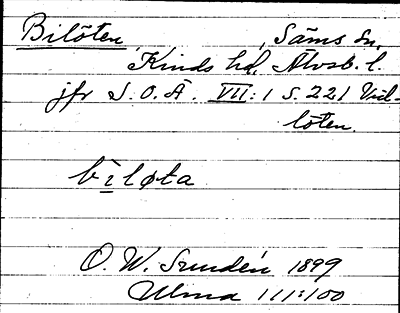 Bilöten, Säms sn,
Kinds hd, Älvsb. l.
jfr S.O.Ä. VII:1 S. 221 Vid-
löten.
bìløta
O. W. Sundén 1899
Ulma 111:100